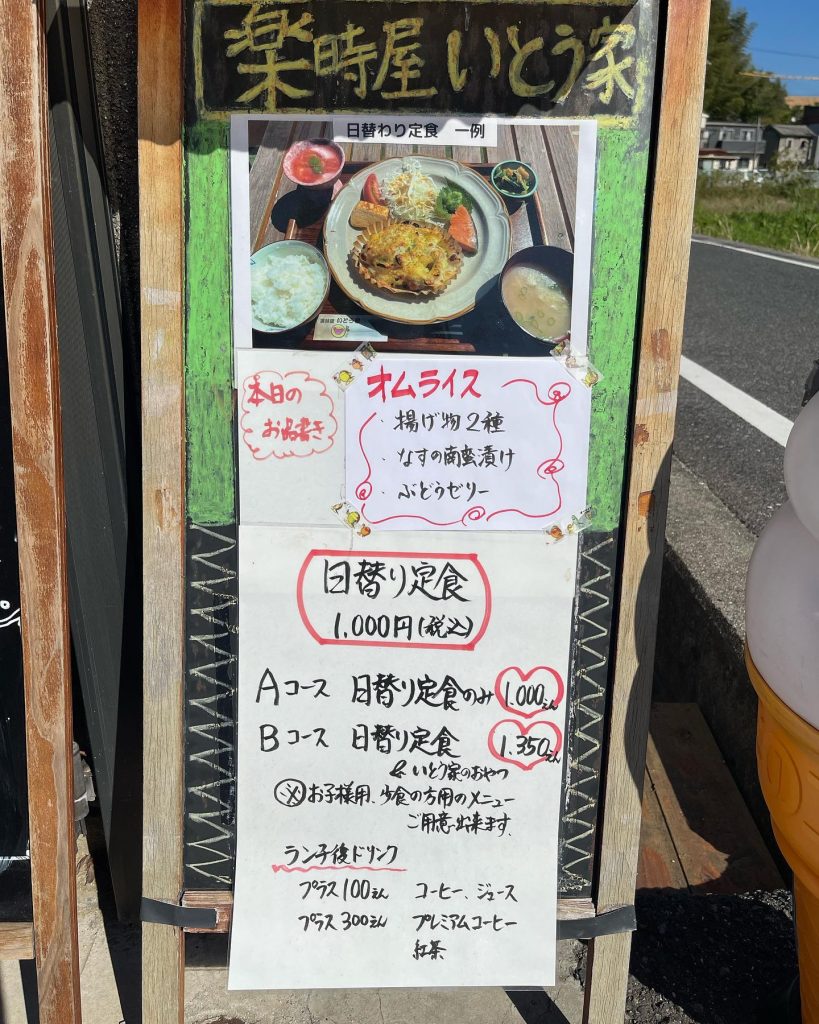 楽時屋 いとう家
日替わり定食 一例
本日の
お品書き
オムライス
・揚げ物2種
・なすの南蛮漬け
・ぶどうゼリー
日替り定食
1,000円(税込)
Aコース 日替り定食のみ 1.000えん
Bコース 日替り定食 1.350えん
& いとう家のおやつ
※お子様用、少食の方用のメニュー
ご用意出来ます。
ランチ後ドリンク
プラス100えん コーヒー、ジュース
プラス300えん プレミアムコーヒー
紅茶